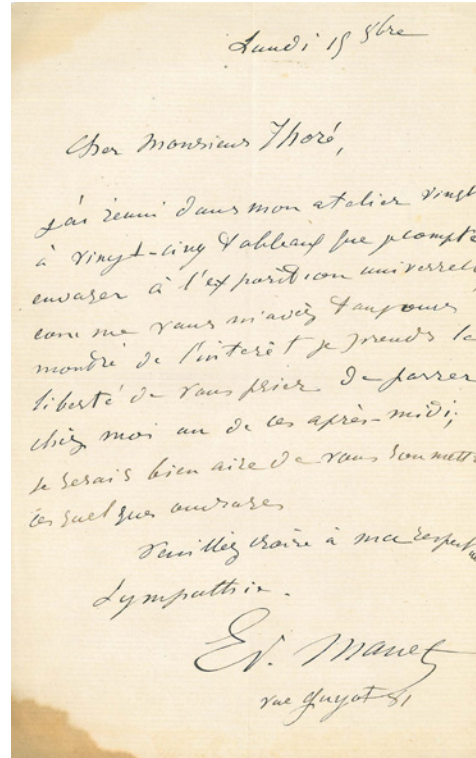 Lundi 15 9bre
Cher Monsieur Thoré,
j'ai réuni dans mon atelier vingt
à vingt-cinq tableaux que je compte
envoyer à l'exposition universell
comme vous m'avez toujours
montré de l'intérêt je prends la
liberté de vous prier de passer
chez moi un de ces après-midi;
je serais bien aise de vous soumett
ces quelques ouvrages
Veuillez croire à ma respectueu
sympathie.
Ed. Manet
rue Guyot 81